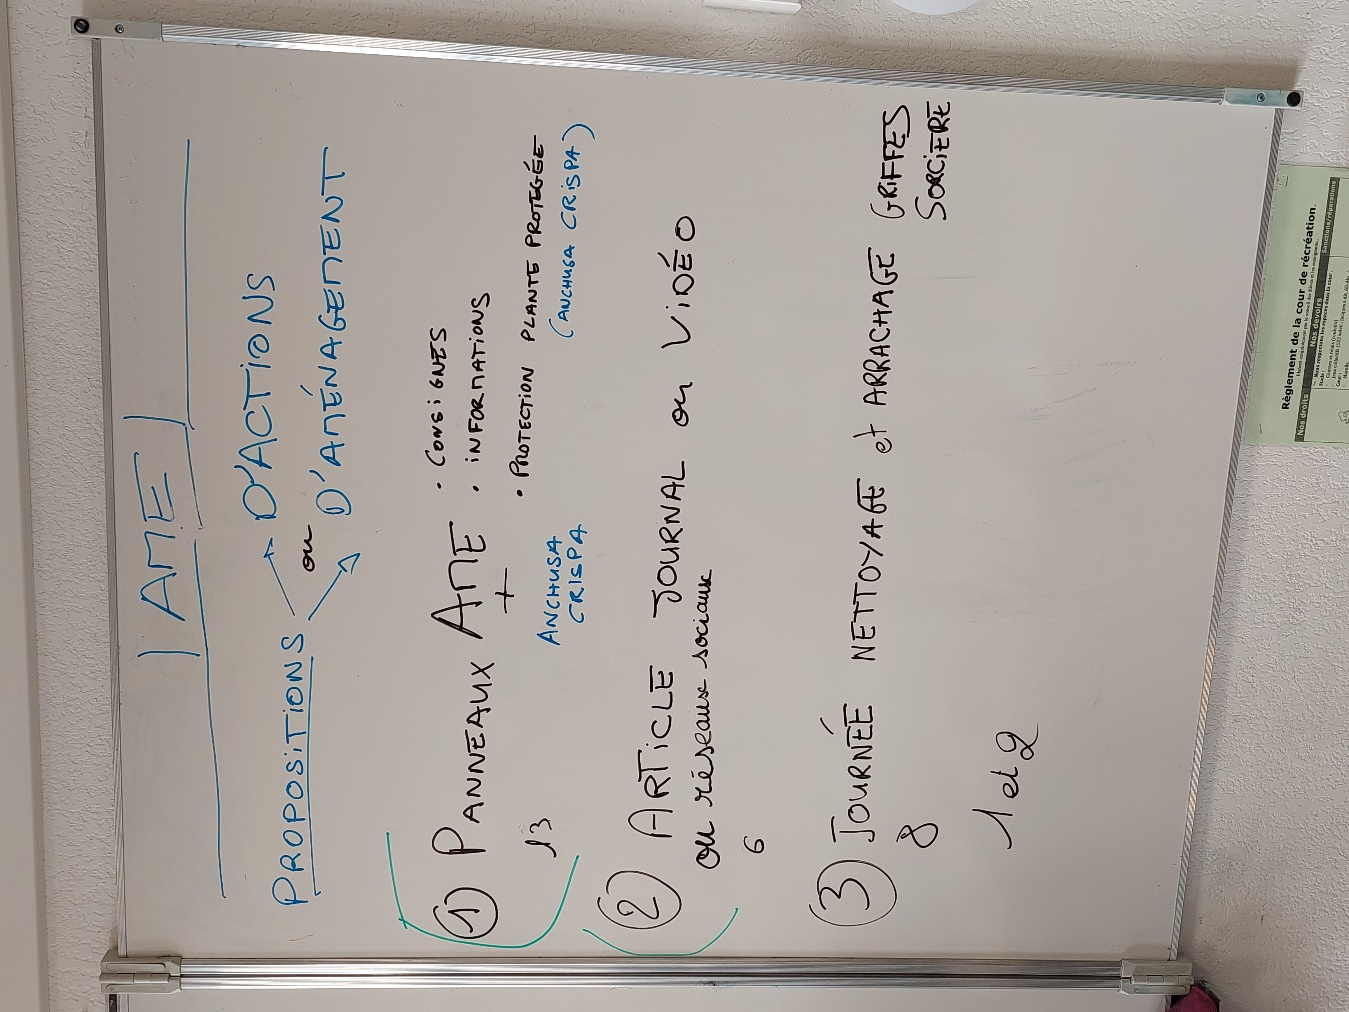 AME
PROPOSITIONS → D'ACTIONS
ou
→ D'AMÉNAGEMENT
① PANNEAUX AME
· CONSIGNES
· INFORMATIONS
· PROTECTION PLANTE PROTEGÉE
(ANCHUSA CRISPA)
+
ANCHUSA
CRISPA
13
② ARTICLE JOURNAL ou VIDÉO
ou réseaux sociaux
6
③ JOURNÉE NETTOYAGE et ARRACHAGE GRIFFES
SORCIERE
8
1 et 2
Règlement de la cour de récréation.
Nos droits
Nos devoirs
Sanctions/réparations